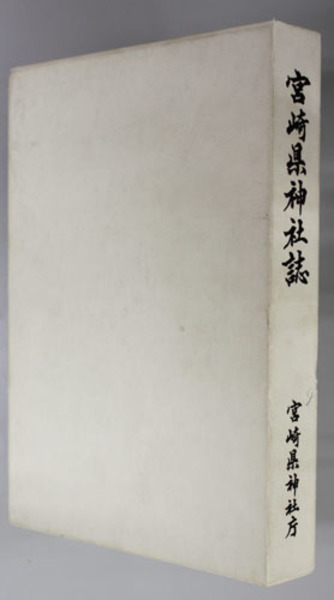 宮崎県神社誌
宮崎県神社庁